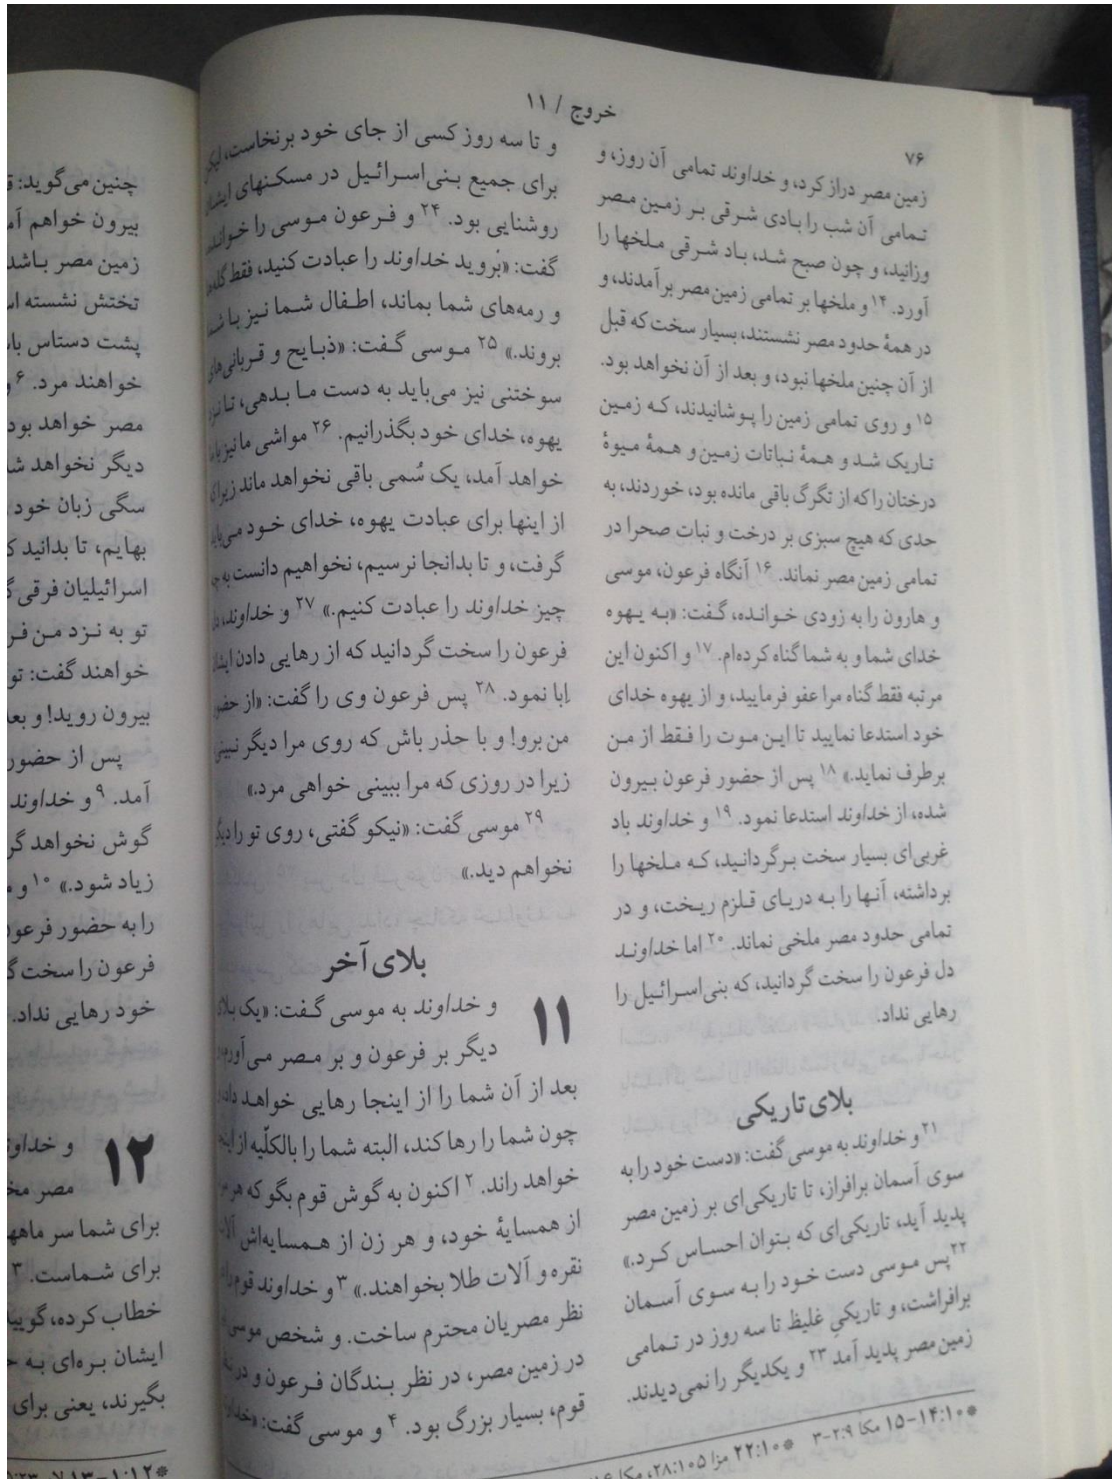 خروج / ۱۱
۷۶
زمین مصر دراز کرد، و خداوند تمامی آن روز، و
تمامی آن شب را بادی شرقی بر زمین مصر
وزانید، و چون صبح شد، باد شرقی ملخها را
آورد. ۱۴ و ملخها بر تمامی زمین مصر برآمدند، و
در همهٔ حدود مصر نشستند، بسیار سخت که قبل
از آن چنین ملخها نبود، و بعد از آن نخواهد بود.
۱۵ و روی تمامی زمین را پوشانیدند، که زمین
تاریک شد و همهٔ نباتات زمین و همهٔ میوهٔ
درختان را که از تگرگ باقی مانده بود، خوردند، به
حدی که هیچ سبزی بر درخت و نبات صحرا در
تمامی زمین مصر نماند. ۱۶ آنگاه فرعون، موسی
و هارون را به زودی خوانده، گفت: «به یهوه
خدای شما و به شما گناه کرده‌ام. ۱۷ و اکنون این
مرتبه فقط گناه مرا عفو فرمایید، و از یهوه خدای
خود استدعا نمایید تا این موت را فقط از من
برطرف نماید.» ۱۸ پس از حضور فرعون بیرون
شده، از خداوند استدعا نمود. ۱۹ و خداوند باد
غربی‌ای بسیار سخت برگردانید، که ملخها را
برداشته، آنها را به دریای قلزم ریخت، و در
تمامی حدود مصر ملخی نماند. ۲۰ اما خداوند
دل فرعون را سخت گردانید، که بنی‌اسرائیل را
رهایی نداد.
بلای تاریکی
۲۱ و خداوند به موسی گفت: «دست خود را به
سوی آسمان برافراز، تا تاریکی‌ای بر زمین مصر
پدید آید، تاریکی‌ای که بتوان احساس کرد.»
۲۲ پس موسی دست خود را به سوی آسمان
برافراشت، و تاریکیِ غلیظ تا سه روز در تمامی
زمین مصر پدید آمد ۲۳ و یکدیگر را نمی‌دیدند.
و تا سه روز کسی از جای خود برنخاست، لیکن
برای جمیع بنی‌اسرائیل در مسکنهای ایشان
روشنایی بود. ۲۴ و فرعون موسی را خوانده،
گفت: «بروید خداوند را عبادت کنید، فقط گله‌ها
و رمه‌های شما بماند، اطفال شما نیز با شما
بروند.» ۲۵ موسی گفت: «ذبایح و قربانی‌های
سوختنی نیز می‌باید به دست ما بدهی، تا نزد
یهوه، خدای خود بگذرانیم. ۲۶ مواشی ما نیز با ما
خواهد آمد، یک سُمی باقی نخواهد ماند زیرا که
از اینها برای عبادت یهوه، خدای خود می‌باید
گرفت، و تا بدانجا نرسیم، نخواهیم دانست به چه
چیز خداوند را عبادت کنیم.» ۲۷ و خداوند، دل
فرعون را سخت گردانید که از رهایی دادن ایشان
اِبا نمود. ۲۸ پس فرعون وی را گفت: «از حضور
من برو! و با حذر باش که روی مرا دیگر نبینی
زیرا در روزی که مرا ببینی خواهی مرد.»
۲۹ موسی گفت: «نیکو گفتی، روی تو را دیگر
نخواهم دید.»
بلای آخر
۱۱ و خداوند به موسی گفت: «یک بلای
دیگر بر فرعون و بر مصر می‌آورم،
بعد از آن شما را از اینجا رهایی خواهد داد،
چون شما را رها کند، البته شما را بالکلّیه از اینجا
خواهد راند. ۲ اکنون به گوش قوم بگو که هر
از همسایهٔ خود، و هر زن از همسایه‌اش آلات
نقره و آلات طلا بخواهند.» ۳ و خداوند قوم را
نظر مصریان محترم ساخت. و شخص موسی
در زمین مصر، در نظر بندگان فرعون و در
قوم، بسیار بزرگ بود. ۴ و موسی گفت:
*۱۴:۱۰-۱۵ مکا ۲:۹-۳ *۲۲:۱۰ مزا ۲۸:۱۰۵، مکا
چنین می‌گوید:
بیرون خواهم
زمین مصر باشد
تختش نشسته
پشت دستاس
خواهند مرد. ۶
مصر خواهد بود
دیگر نخواهد
سگی زبان خود
بهایم، تا بدانید
اسرائیلیان فرقی
تو به نزد من
خواهند گفت: تو
بیرون روید! و
پس از حضور
آمد. ۹ و خداوند
گوش نخواهد
زیاد شود.» ۱۰ و
را به حضور
فرعون را سخت
خود رهایی نداد.
۱۲ و
مصر
برای شما سر
برای شماست. ۳
خطاب کرده،
ایشان بره‌ای به
بگیرند، یعنی برای